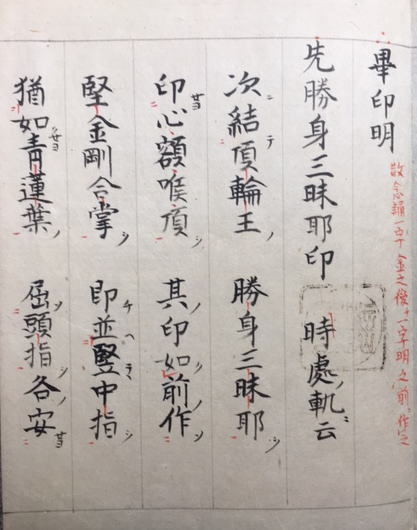 畢印明
散念誦一百丁金之後一字明之前作之
先勝身三昧耶印 時處軌云
次結頂輪王 勝身三昧耶
印心額喉頂 其印如前作
堅金剛合掌 即並竪中指
猶如青蓮葉 屈頭指各安